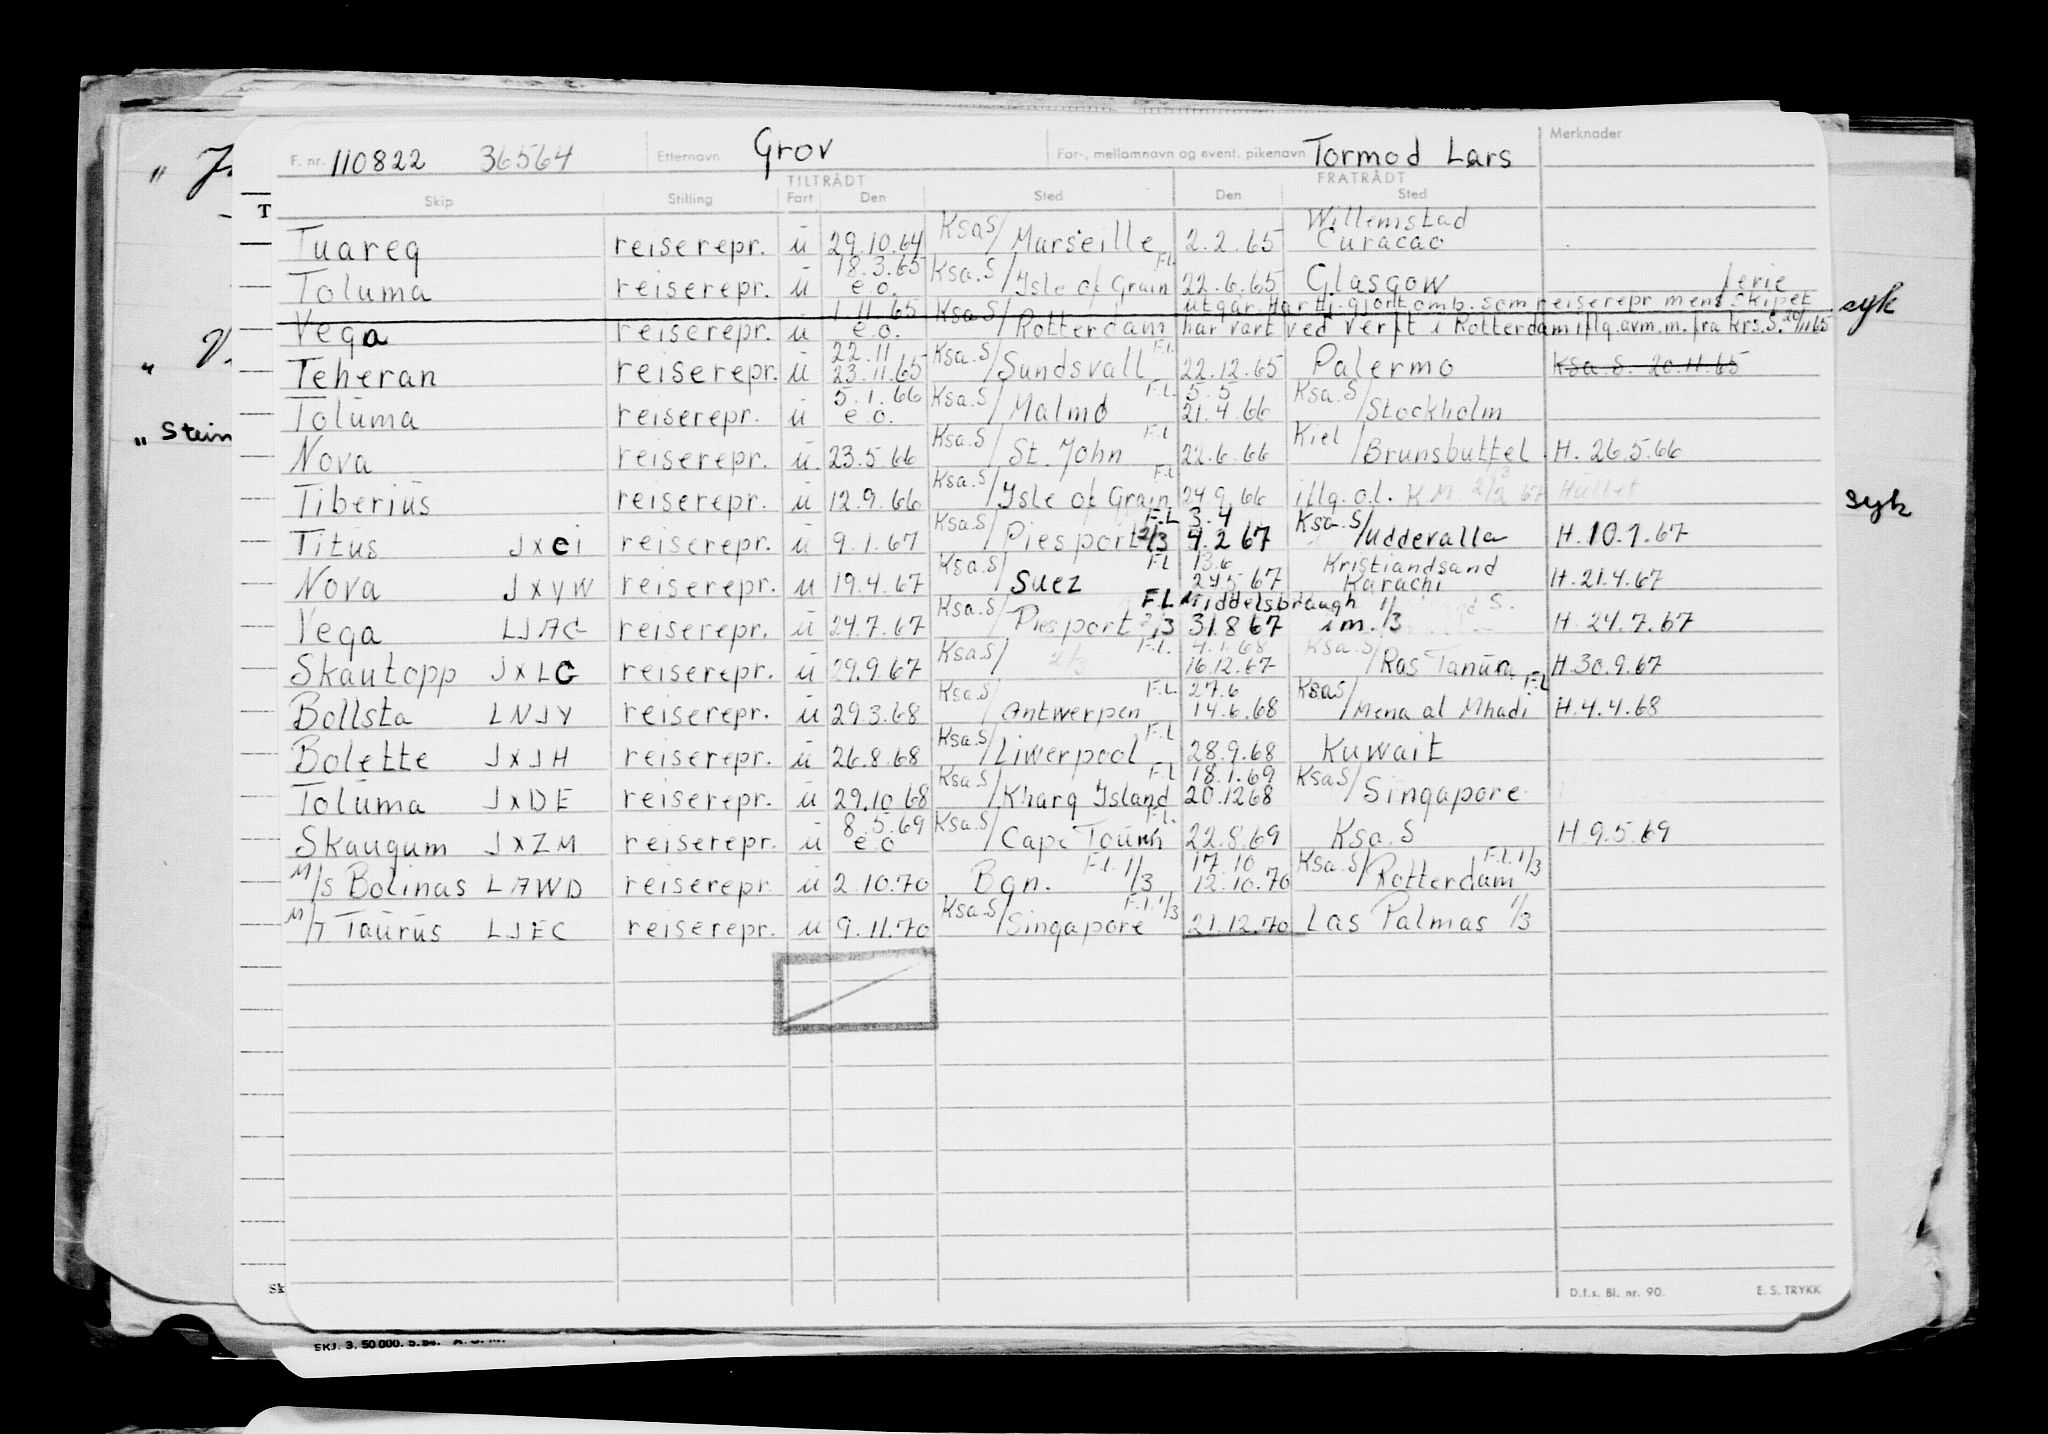 F. nr. 110822 36564 Etternavn Grov For-, mellomnavn og event. pikenavn Tormod Lars Merknader
TILTRÅDT FRATRÅDT
Skip Stilling Fart Den Sted Den Sted
Tuareg reiserepr. u 29.10.64 Ksa S/Marseille 2.2.65 Willemstad Curacao
Toluma reiserepr. u 18.3.65 e.o. Ksa.S/Isle of Grain F.L. 22.6.65 Glasgow ferie
Vega reiserepr. u 1.11.65 e.o. Ksa S/Rotterdam utgår. Har gjort omb. som reiserepr mens skipet
har vært ved verft i Rotterdam iflg. avm. m. fra krs. S. 20/11 65 syk
Teheran reiserepr. u 22.11 23.11.65 Ksa.S/Sundsvall F.L. 22.12.65 Palermo Ksa. S. 20.11.65
Toluma reiserepr. u 5.1.66 e.o. Ksa.S/Malmö F.L. 5.5 21.4.66 Ksa.S/Stockholm
" Stein
Nova reiserepr. u. 23.5.66 Ksa.S/St. John F.L 22.6.66 Kiel/Brunsbuttel H. 26.5.66
Tiberius reiserepr. u 12.9.66 Ksa.S/Isle of Grain F.L 24 9.66 illg. o.l. K M. 67 syk
Titus JXEI reiserepr. u 9.1.67 Ksa.S/Piesport F.L 2/3 3.4 4.2 67 Ksa. S/Uddevalla H. 10.1.67
Nova JXYW reiserepr. u 19.4.67 Ksa.S/Suez F.L 13.6 67 Kristiandsand Karachi H. 21.4.67
Vega LJAG reiserepr. u 24.7.67 Ksa.S/Piesport 2/3 F.L Middelsbraugh 31.8 67 im. 1/3 H. 24.7.67
Skautopp JXLG reiserepr. u 29.9.67 Ksa.S/ 2/3 F.L. 4.1.68 16.12.67 Ksa.S/Ras Tanura H. 30.9.67
Bollsta LNJY reiserepr. u 29.3.68 Ksa.S/Antwerpen F.L. 27.6 14.6.68 Ksa S/Mena al Mhadi F.L H. 4.4.68
Bolette JXJH reiserepr. u 26.8.68 Ksa.S/Liwerpool F.L 28.9.68 Kuwait
Toluma JXDE reiserepr. u 29.10 68 Ksa.S/Kharg Island F.L 18.1.69 20.12 68 Ksa S/Singapore
Skaugum JXZM reiserepr. u 8.5.69 e.o Ksa.S/Cape Town F.L. 22.8.69 Ksa.S H 9.5.69
M/S Bolinas LAWD reiserepr. u 2.10.70 Bgn. F.L. 1/3 1/3 17.10 12.10.70 Ksa.S/Rotterdam F.L. 1/3
M/T Taurus LJEC reiserepr. u 9.11.70 Ksa.S/Singapore F.L. 1/3 21.12.70 Las Palmas 1/3
D.f.s. Bl. nr. 90. E. S. TRYKK
SKJ. 3. 50 000.